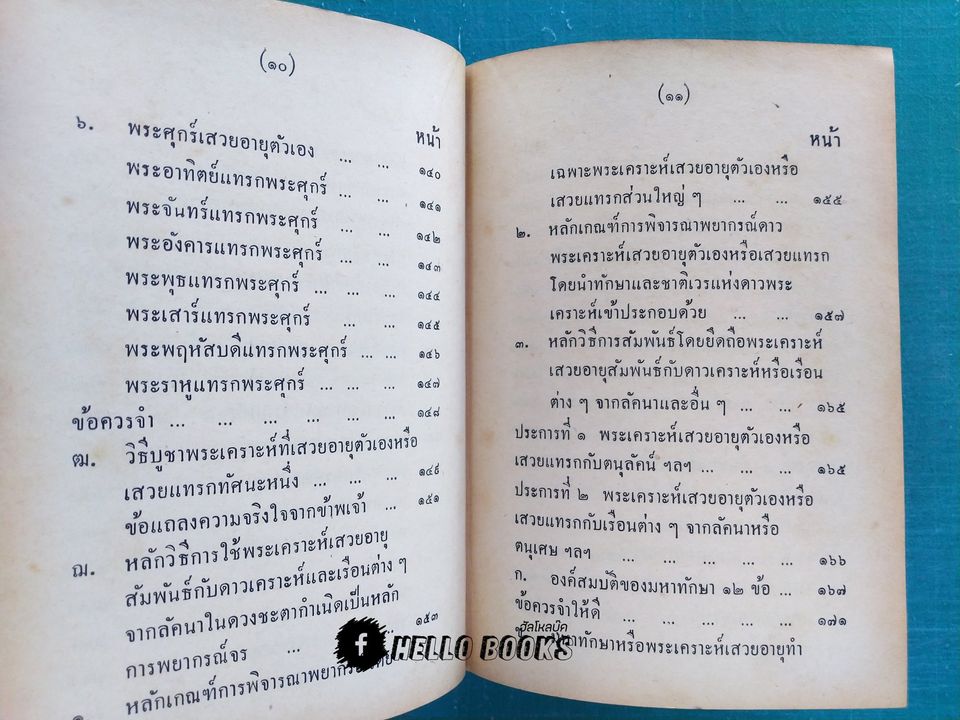 (๑๐)
หน้า
๖. พระศุกร์เสวยอายุตัวเอง ... ... ๑๔๐
พระอาทิตย์แทรกพระศุกร์ ... ... ๑๔๑
พระจันทร์แทรกพระศุกร์ ... ... ๑๔๒
พระอังคารแทรกพระศุกร์ ... ... ๑๔๓
พระพุธแทรกพระศุกร์ ... ... ... ๑๔๔
พระเสาร์แทรกพระศุกร์ ... ... ๑๔๕
พระพฤหัสบดีแทรกพระศุกร์ ... ... ๑๔๖
พระราหูแทรกพระศุกร์ ... ... ... ๑๔๗
ข้อควรจำ ... ... ... ... ... ... ๑๔๘
ฒ. วิธีบูชาพระเคราะห์ที่เสวยอายุตัวเองหรือ
เสวยแทรกทัศนะหนึ่ง ... ... ... ๑๔๙
ข้อแถลงความจริงใจจากข้าพเจ้า ... ๑๕๑
ฌ. หลักวิธีการใช้พระเคราะห์เสวยอายุ
สัมพันธ์กับดาวเคราะห์และเรือนต่าง ๆ
จากลัคนาในดวงชะตากำเนิดเป็นหลัก
การพยากรณ์จร ... ... ๑๕๓
หลักเกณฑ์การพิจารณาพยากรณ์
(๑๑)
หน้า
เฉพาะพระเคราะห์เสวยอายุตัวเองหรือ
เสวยแทรกส่วนใหญ่ ๆ ... ... ๑๕๕
๒. หลักเกณฑ์การพิจารณาพยากรณ์ดาว
พระเคราะห์เสวยอายุตัวเองหรือเสวยแทรก
โดยนำทักษาและชาติเวรแห่งดาวพระ
เคราะห์เข้าประกอบด้วย ... ... ๑๕๗
๓. หลักวิธีการสัมพันธ์โดยยึดถือพระเคราะห์
เสวยอายุสัมพันธ์กับดาวเคราะห์หรือเรือน
ต่าง ๆ จากลัคนาและอื่น ๆ ... ... ๑๖๕
ประการที่ ๑ พระเคราะห์เสวยอายุตัวเองหรือ
เสวยแทรกกับตนุลัคน์ ฯลฯ ... ... ... ๑๖๕
ประการที่ ๒ พระเคราะห์เสวยอายุตัวเองหรือ
เสวยแทรกกับเรือนต่าง ๆ จากลัคนาหรือ
ตนุเศษ ฯลฯ ... ... ... ... ... ๑๖๖
ก. องค์สมบัติของมหาทักษา ๑๒ ข้อ ... ๑๖๗
ข้อควรจำให้ดี ... ... ... ... ... ๑๗๑
มหาทักษาหรือพระเคราะห์เสวยอายุทำ
ฮัลโหลบุ๊ค
f HELLO BOOKS